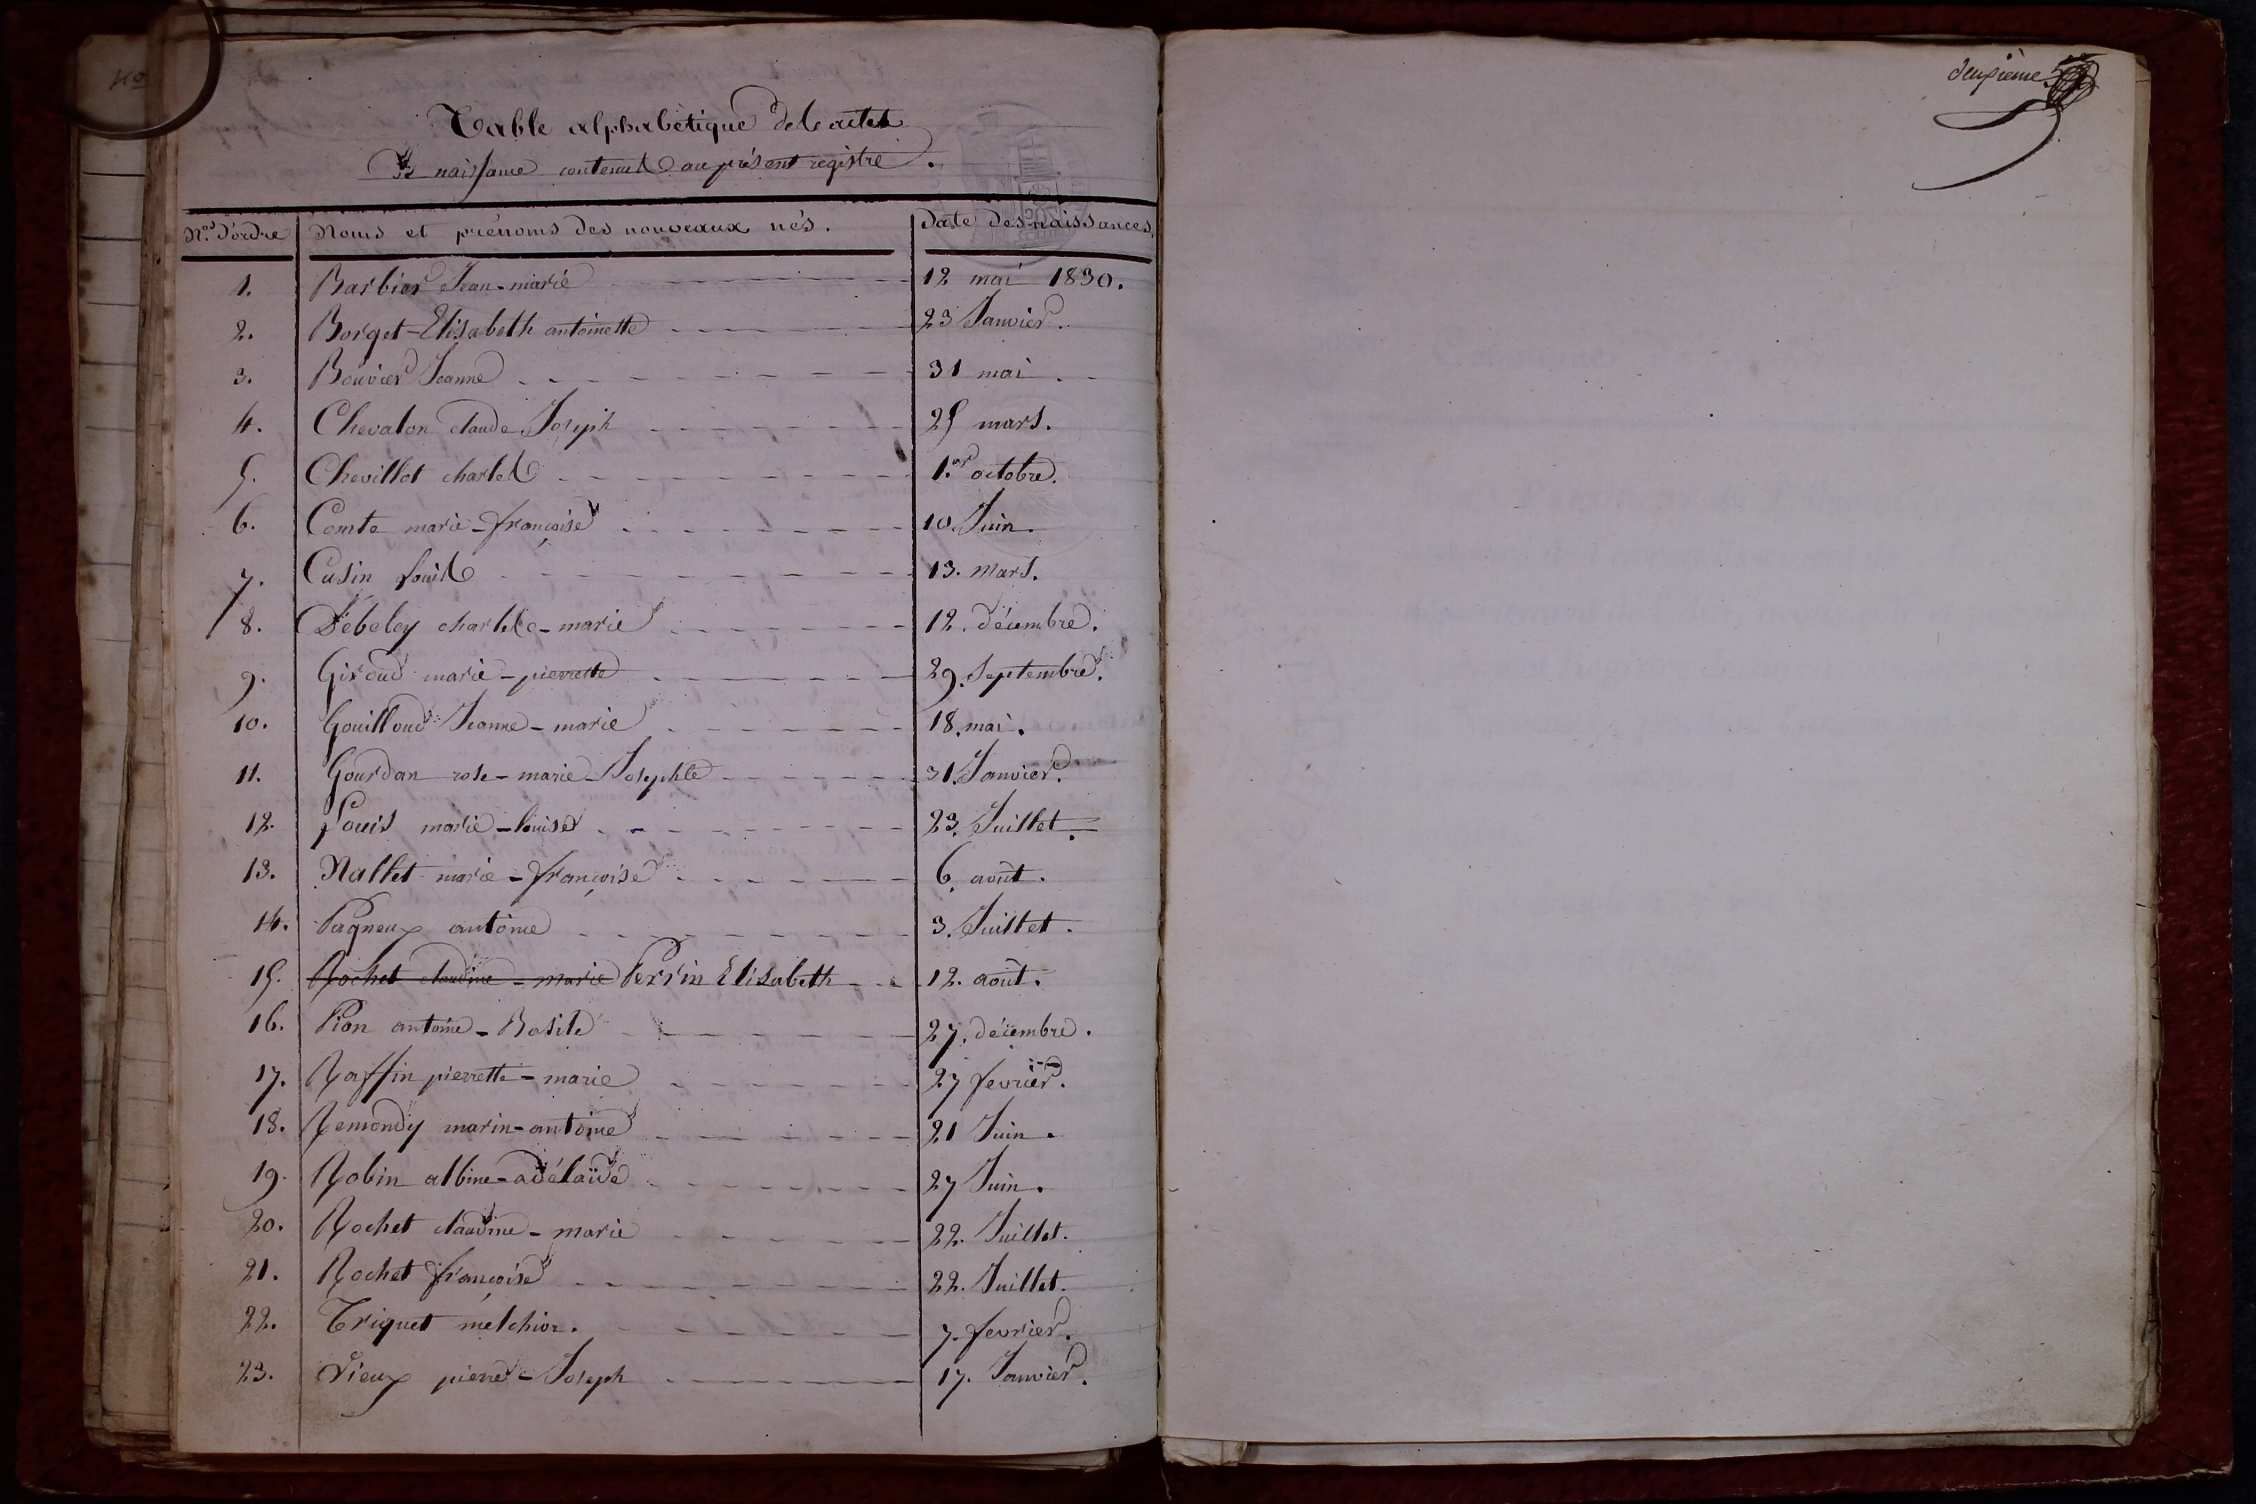 Table alphabétique des actes
de naissance contenus au présent registre.
Nos d'ordre Noms et prénoms des nouveaux nés. date des naissances.
1. Barbier Jean-marie 12 mai 1830.
2. Borget-Elisabeth antoinette 23 Janvier.
3. Bouvier Jeanne 31 mai.
4. Chevalon claude Joseph 25 mars.
5. Chevillot charles 1.er octobre.
6. Comte marie-françoise 10. Juin.
7. Cusin Louis 13. Mars.
8. Débeley charles-marie 12. décembre.
9. Giroud marie-pierrette 29. Septembre.
10. Gouilloud Jeanne-marie 18. mai.
11. Gourdan rose-marie-Josephte 31. Janvier.
12. Louis marie-louise 23. Juillet.
13. Nallet marie-françoise 6. août.
14. Pagneux antoine 3. Juillet.
15. Rochet claudine-marie Perrin Elisabeth 12. août.
16. Pion antoine-Basile 27. décembre.
17. Raffin pierrette-marie 27 fevrier.
18. Remondy marin-antoine 21 Juin.
19. Robin albine-adélaïde 27 Juin.
20. Rochet claudine-marie 22. Juillet.
21. Rochet françoise 22. Juillet.
22. Triquet melchior. 7. fevrier.
23. Vieux pierre-Joseph 17. Janvier.
deuxième